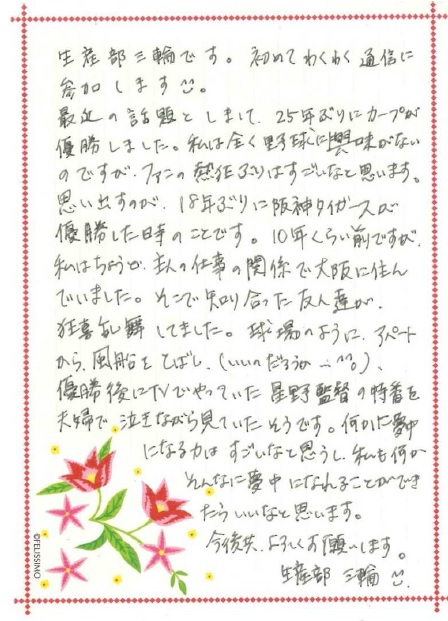 生産部三輪です。初めてわくわく通信に
参加します。
最近の話題としまして、25年ぶりにカープが
優勝しました。私は全く野球に興味がない
のですが、ファンの熱狂ぶりはすごいなと思います。
思い出すのが、18年ぶりに阪神タイガースが
優勝した時のことです。10年くらい前ですが、
私はちょうど、主人の仕事の関係で大阪に住ん
でいました。そこで知り合った友人達が、
狂喜乱舞してました。球場のように、アパート
から、風船をとばし、(いいのだろうか…)、
優勝後にTVでやっていた星野監督の特番を
夫婦で泣きながら見ていたそうです。何かに夢中
になる力はすごいなと思うし、私も何か
そんなに夢中になれることができ
たらいいなと思います。
今後共、よろしくお願いします。
生産部 三輪
©FELISSIMO